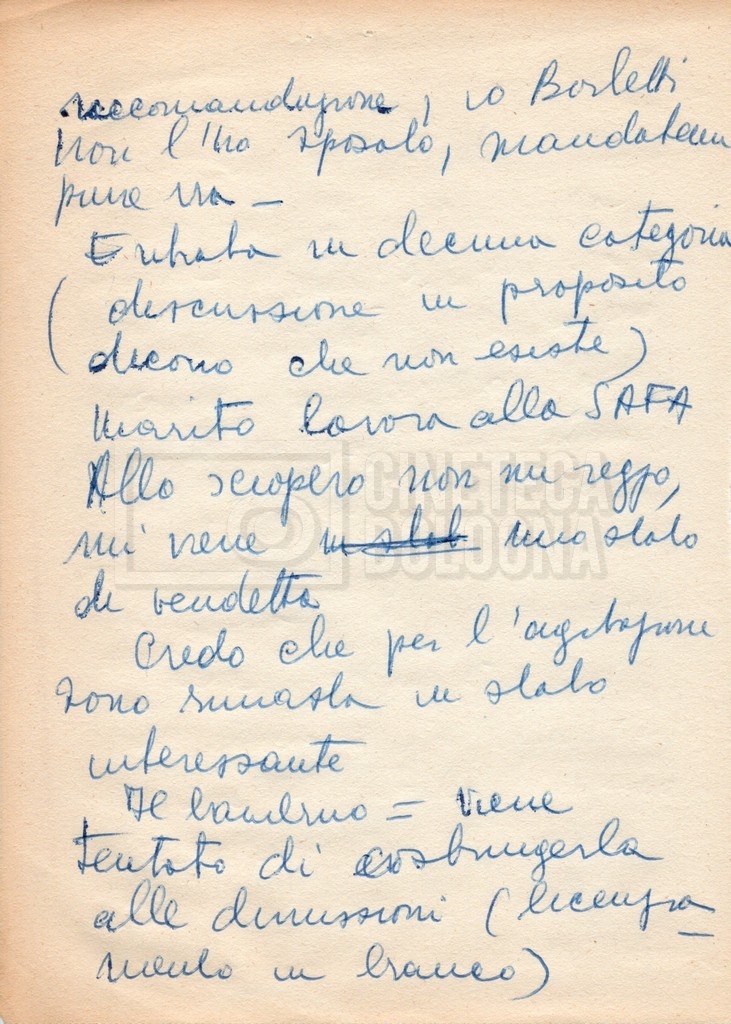 raccomandazione, io Borletti
non l'ho sposato, mandatemi
pure via –
Entrata in decima categoria
(discussione in proposito
dicono che non esiste)
Marito lavora alla SAFA
Allo sciopero non mi reggo,
mi viene in stato uno stato
di vendetta
Credo che per l'agitazione
sono rimasta in stato
interessante
Il bambino = viene
tentato di costringerla
alle dimissioni (licenzia
mento in bianco)
CINETECA
BOLOGNA